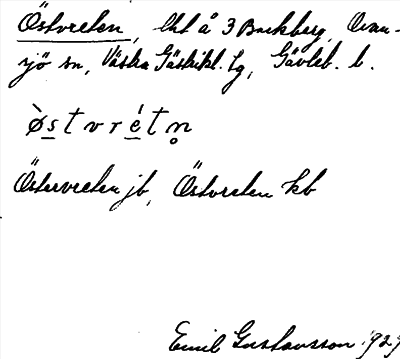 Östvreten, lht å 3 Backberg, Ovan-
sjö sn, Västra Gästrikl. tg, Gävleb. l.
ö̀stvrétn̥
Östervreten jb, Östvreten kb
Emil Gustavsson 1929